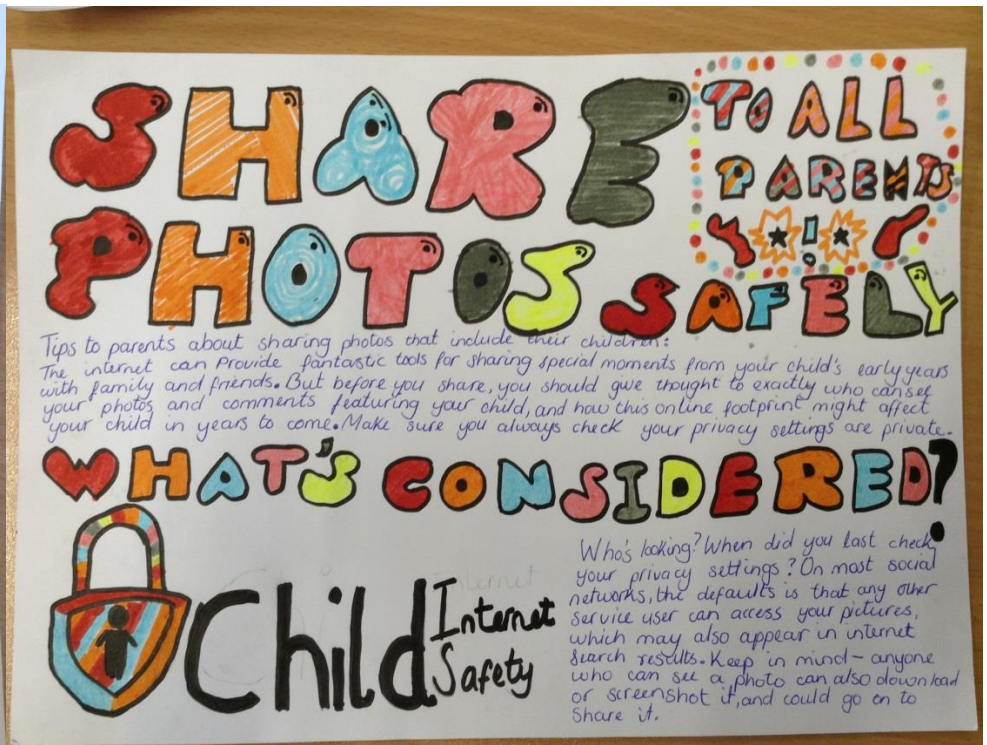 SHARE
TO ALL
PARENTS
!
PHOTOS
SAFELY
Tips to parents about sharing photos that include their children:
The internet can Provide fantastic tools for sharing special moments from your child's early years
with family and friends. But before you share, you should give thought to exactly who can see
your photos and comments featuring your child, and how this online footprint might affect
your child in years to come. Make sure you always check your privacy settings are private.
WHAT'S CONSIDERED?
Child Internet
Safety
Who's looking? When did you last check
your privacy settings? On most social
networks, the defaults is that any other
service user can access your pictures,
which may also appear in internet
search results. Keep in mind - anyone
who can see a photo can also download
or screenshot it, and could go on to
share it.